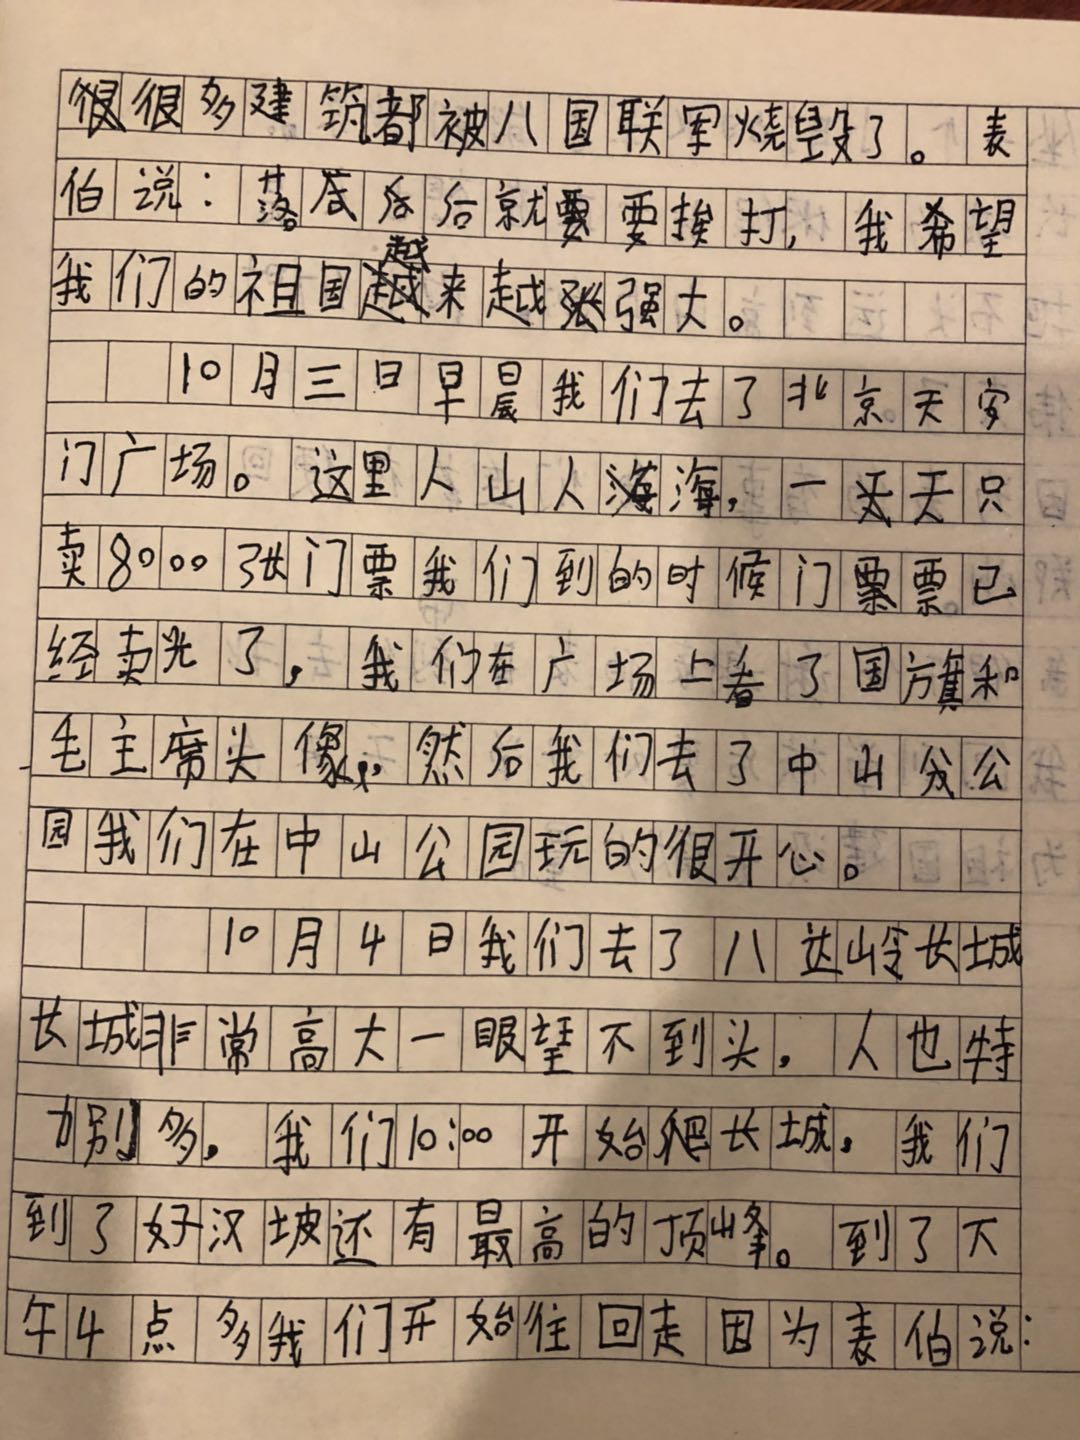 很多建筑都被八国联军烧毁了。表
伯说：落后就要挨打，我希望
我们的祖国越来越强大。
10月三日早晨我们去了北京天安
门广场。这里人山人海，一天只
卖8000张门票我们到的时候门票已
经卖光了，我们在广场上看了国旗和
毛主席头像，然后我们去了中山公
园我们在中山公园玩的很开心。
10月4日我们去了八达岭长城
长城非常高大一眼望不到头，人也特
别多，我们10:00开始爬长城，我们
到了好汉坡还有最高的顶峰。到了下
午4点多我们开始往回走因为表伯说：